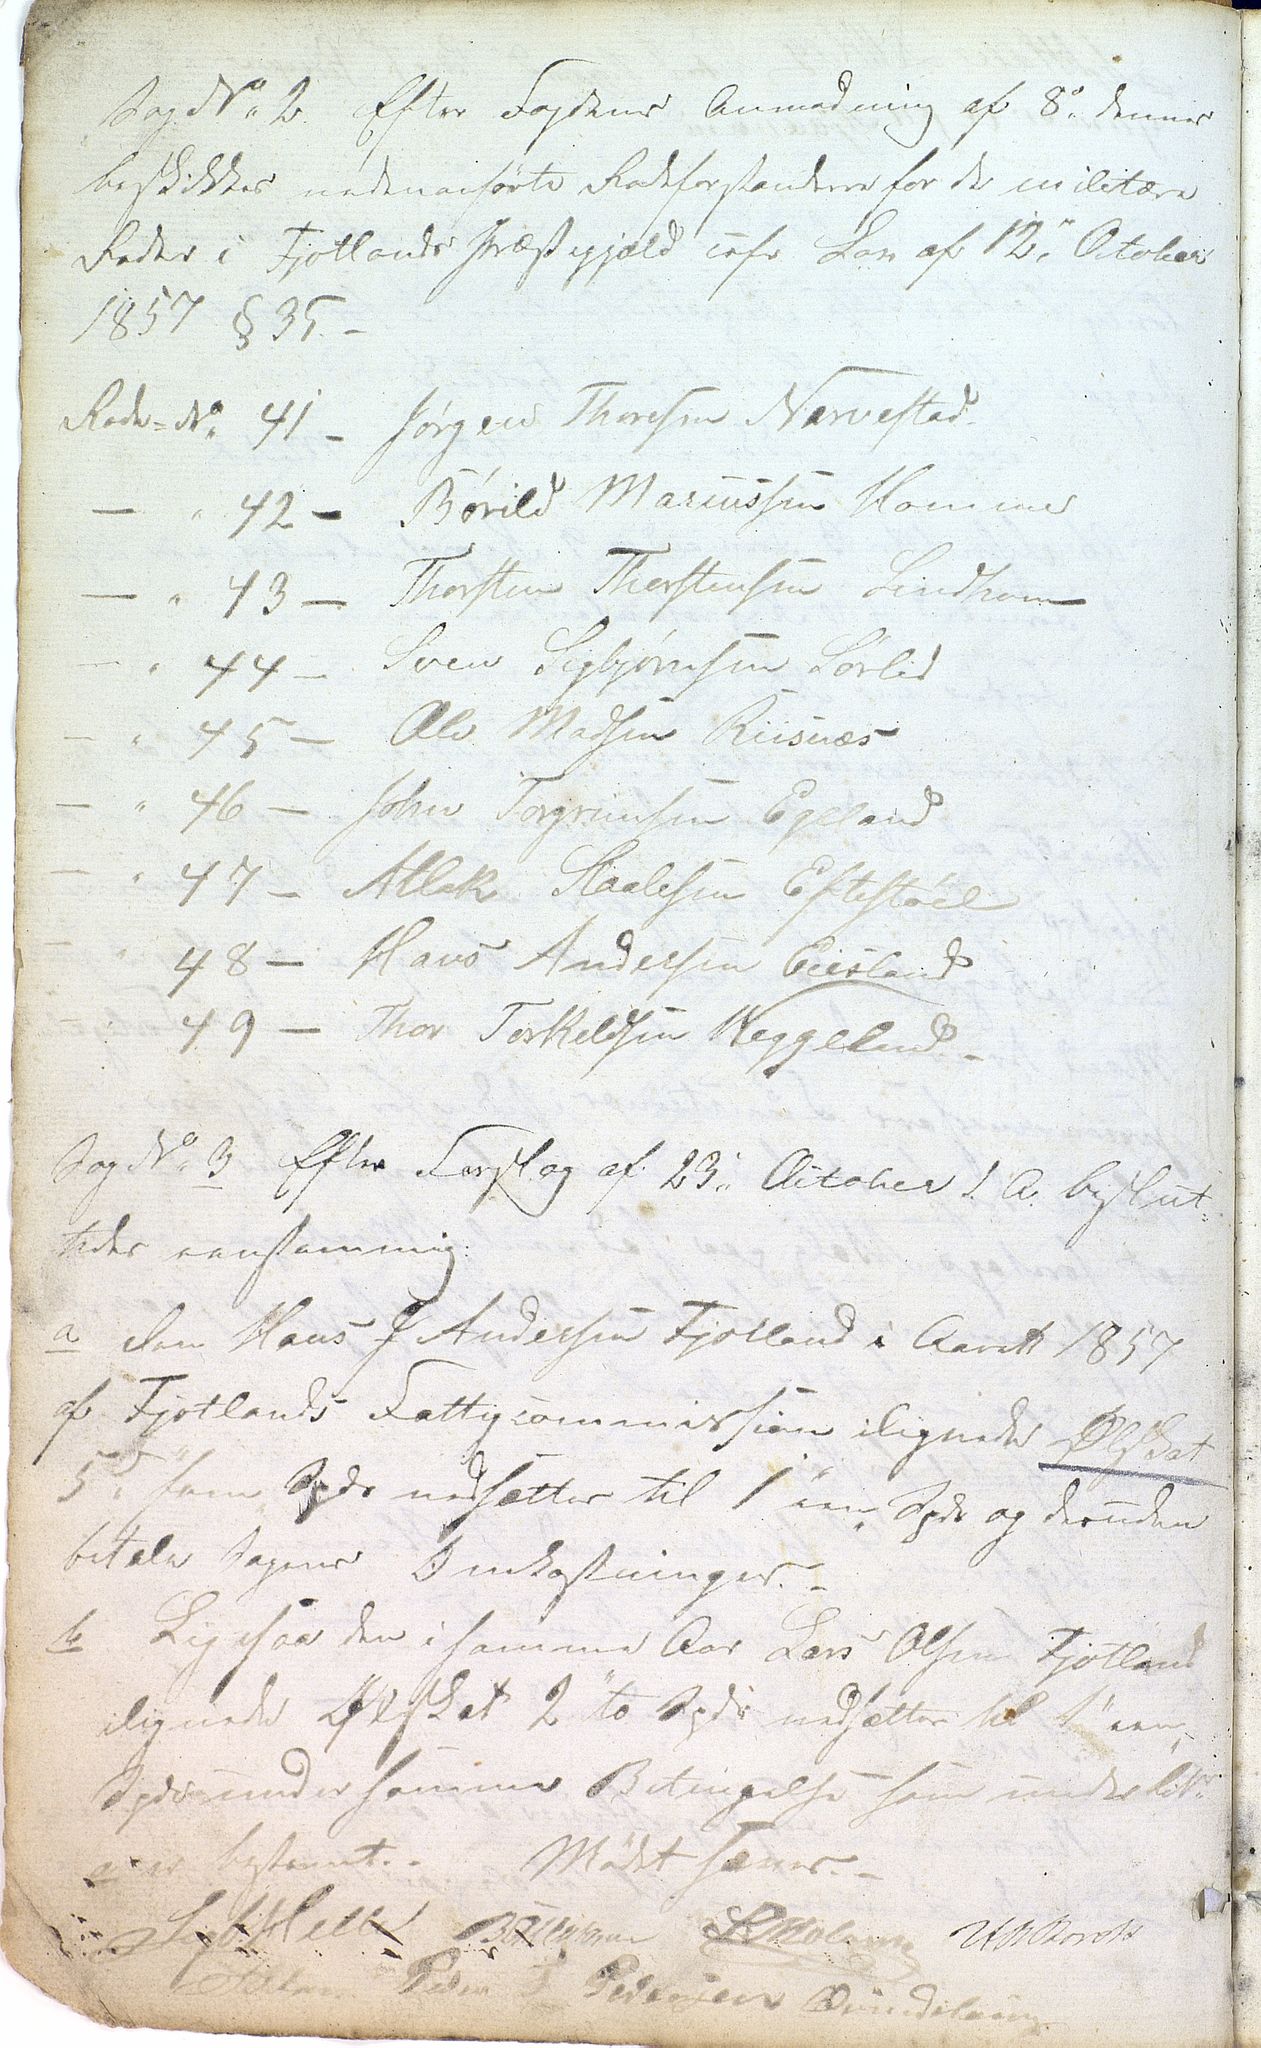 Sag No 2. Efter Fogdens Anmodning af 8de dennes
beskikkes nedenanførte Rodeforstandere for de militære
Roder i Fjotlands Præstegjæld cefr Lov af 12" October
1857 § 35.-
Rode-No 41 - Jørgen Thoresen Narvestad.
— " 42 - Børild Mariussen Homme
— " 43 — Thorsten Thorstensen Lindhom
— " 44 — Sven Sigbjørnsen Sørlid
— " 45 — Ole Madsen Riisnæs
— " 46 — John Torgrimsen Egeland
— " 47 — Atlak Staalesen Eftestøel
— " 48 — Hans Andersen Eiesland
— " 49 — Thor Torkeldsen Heggeland.-
Sag No 3 Efter Forslag af 23" October d. A. beslut-
tedes eenstemmig:
a den Hans J Andersen Fjotland i Aaret 1857
af Fjotlands Fattigcommission ilignede Ølskat
5" fem Spd nedsættes til 1" een Spd og desuden
betale Sagens Omkostninger.-
b Ligesaa den i samme Aar Lars Olsen Fjotland
ilignede Ølskat 2" to Spd nedsættes til 1" een
Spd under samme Betingelse som under Litr.
a er bestemt.- Mødet hævet.-
Peder Pedersen